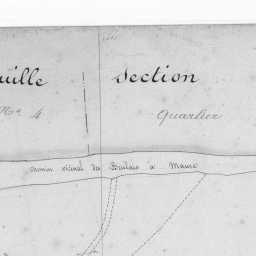 uille Section
No 4 Quartier
chemin vicinal de à